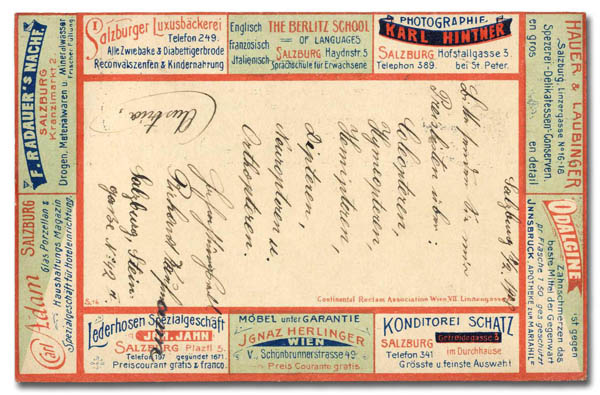 Salzburger Luxusbäckerei
Telefon 249.
Alle Zwiebake & Diabetigerbrode
Reconvalszenfen & Kindernahrung
Englisch
Französisch
Jtaljenisch
THE BERLITZ SCHOOL
OF LANGUAGES
SALZBURG Haydnstr. 5
Sprachschule für Erwachsene
PHOTOGRAPHIE.
KARL HINTNER
SALZBURG Hofstallgasse 5.
Telephon 389. bei St. Peter.
HAUER & LAUBINGER
Salzburg, Linzergasse No 16-18
Spezerei-Delikatessen-Conserven.
en gros en detail
ODALGINE
ist gegen
Zahnschmerzen das
beste Mittel der Gegenwart
pr. Flasche 1.50 ges. geschützt
JNNSBRUCK, APOTHEKE ZUR MARIAHILF
F. RADAUER'S NACHF.
SALZBURG
Kranzlmarkt 2.
Drogen, Materialwaren u. Mineralwässer
frischer Füllung.
Carl Adam SALZBURG
Glas, Porzellan &
Haushaltungs Magazin
Spezialgeschäft für Hoteleinrichtung
Salzburg
Bitte senden Sie mir
über:
Coleopteren,
Hymenopteren
Hemipteren
Depteren,
Neuropteren u.
Orthopteren.
Salzburg, Stein-
gasse No
(Austria)
Continental Reclam Association Wien VII. Lindengasse
Lederhosen Spezialgeschäft
JOH. JAHN
SALZBURG Platzl 5.
Telefon 197 gegründet 1671.
Preiscourant gratis & franco.
MÖBEL unter GARANTIE
JGNAZ HERLINGER
WIEN
V., Schönbrunnerstrasse 49.
Preis Courante gratis.
KONDITOREI SCHATZ
SALZBURG Getreidegasse 3
im Durchhause
Telefon 341
Grösste u feinste Auswahl